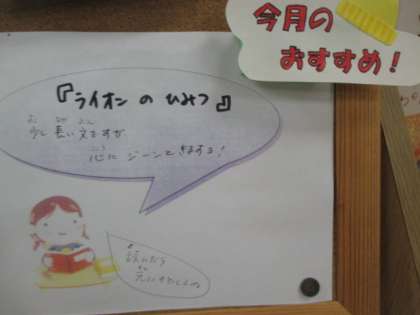 今月の
おすすめ！
『ライオンのひみつ』
少し長い文ですが
心にジーンときますよ！
読んだら
元に